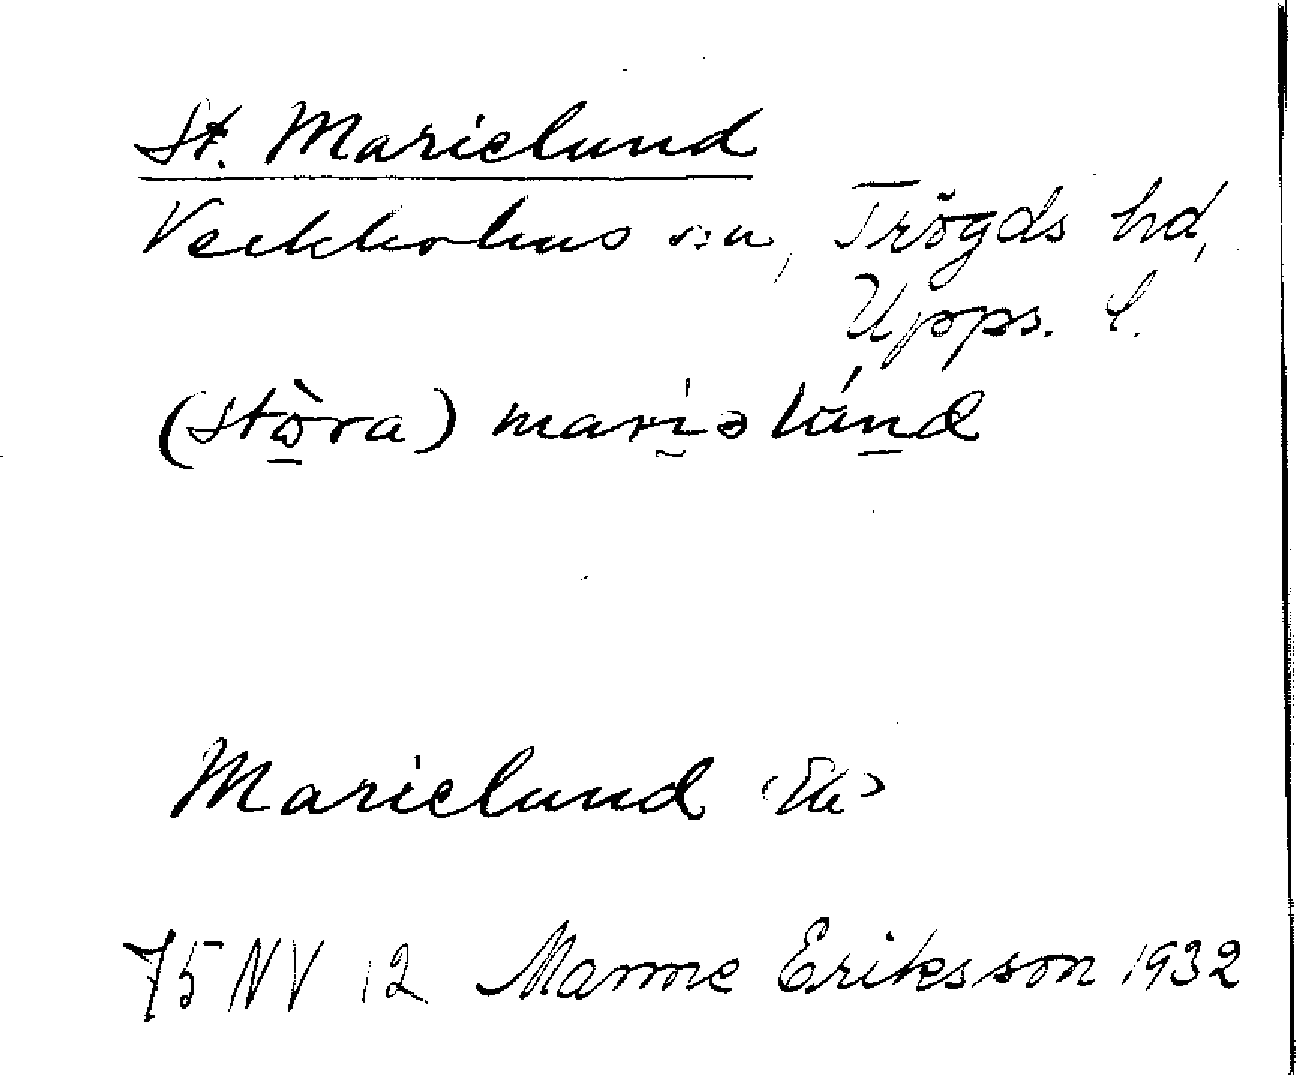 St. Marielund
Veckholms sn, Trögds hd,
Upps. l.
(stòra) mariəlúnd
Marielund
75 NV 12 Manne Eriksson 1932